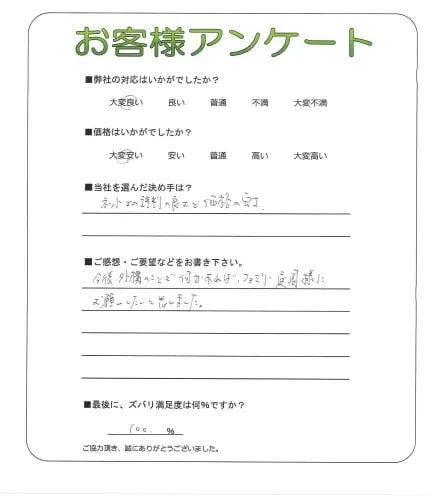 お客様アンケート
■弊社の対応はいかがでしたか？
大変良い 良い 普通 不満 大変不満
■価格はいかがでしたか？
大変安い 安い 普通 高い 大変高い
■当社を選んだ決め手は？
ネットでの評判の良さと価格の安さ
■ご感想・ご要望などをお書き下さい。
今後外構のことで何かあれば、ファミリー庭園様に
お願いしたいと思いました。
■最後に、ズバリ満足度は何％ですか？
100. %
ご協力頂き、誠にありがとうございました。